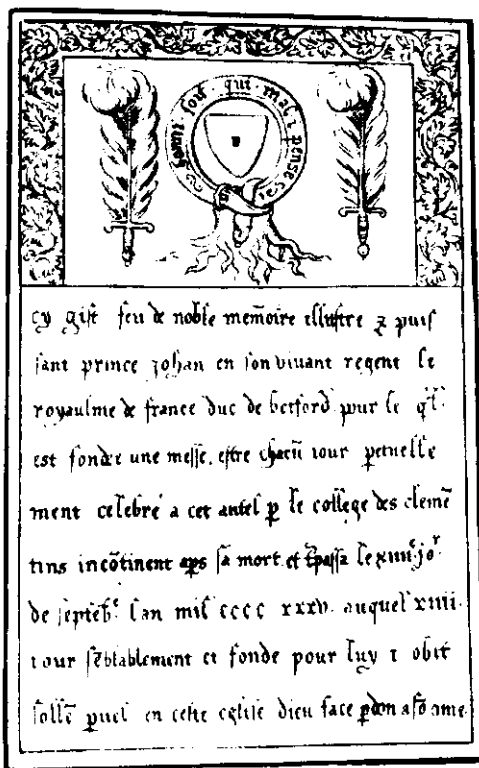 honni soit qui mal i pense
cy gist feu de noble mēmoire illustre ⁊ puis
sant prince johan en son vivant regent le
royaulme de france duc de betford pour le ql̄.
est fondee une messe. estre chacū iour ꝑetuelle
ment celebré a cet autel ꝑ le college des clemē
tins incōtinent aps sa mort et t̄passa le xiiiiᵉ joʳ
de septēbᵉ lan mil cccc xxxv. auquel xiiii.
iour sēblablement et fonde pour luy ı obit
sollē ꝑuel en ceste eglise dieu face ꝑdon a sō ame.